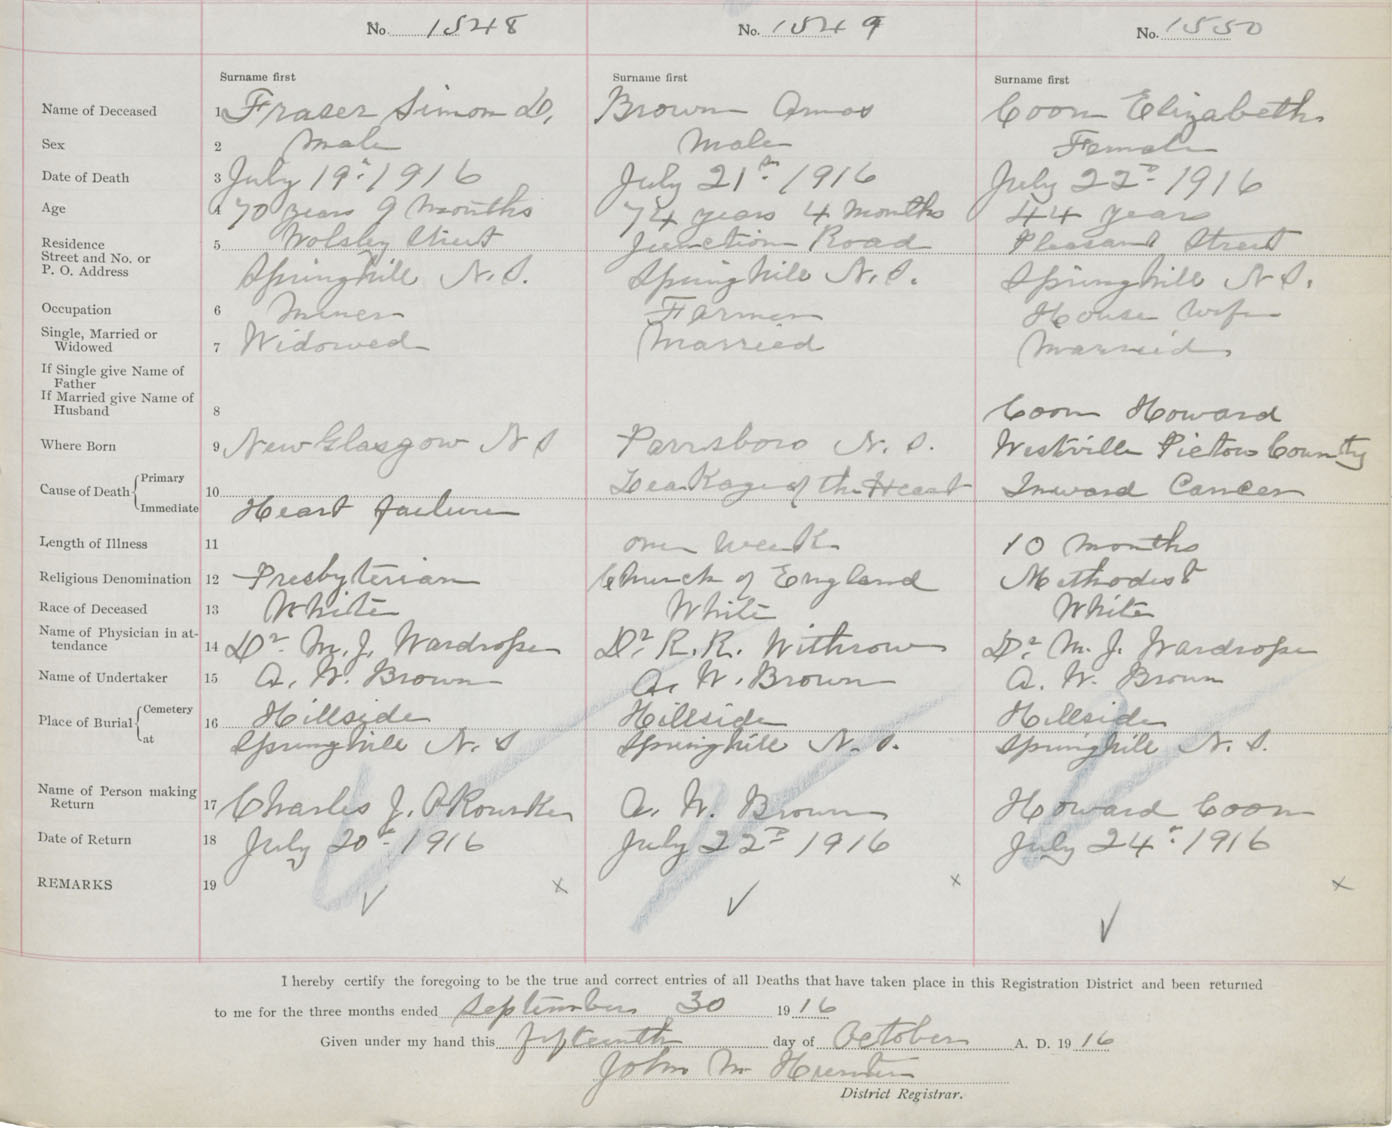 No. 1548 No. 1549 No. 1550
Surname first Surname first Surname first
Name of Deceased 1 Fraser Simon D. Brown Amos Coon Elizabeth
Sex 2 Male Male Female
Date of Death 3 July 19th 1916 July 21st 1916 July 22nd 1916
Age 4 70 years 9 months 74 years 4 months 44 years
Residence 5 Wolsley Street Junction Road Pleasant Street
Street and No. or
P. O. Address Springhill N.S. Springhill N.S. Springhill N.S.
Occupation 6 Miner Farmer House wife
Single, Married or
Widowed 7 Widowed Married Married
If Single give Name of
Father
If Married give Name of
Husband 8 Coon Howard
Where Born 9 New Glasgow N S Parrsboro N. S. Westville Pictou County
Cause of Death Primary 10 Leakage of the Heart Inward Cancer
Immediate Heart failure
Length of Illness 11 one week 10 months
Religious Denomination 12 Presbyterian Church of England Methodist
Race of Deceased 13 White White White
Name of Physician in at-
tendance 14 Dr. M. J. Wardrope Dr. R. R. Withrow Dr. M. J. Wardrope
Name of Undertaker 15 A. W. Brown A. W. Brown A. W. Brown
Place of Burial Cemetery 16 Hillside Hillside Hillside
at Springhill N. S Springhill N. S. Springhill N. S.
Name of Person making
Return 17 Charles J. O'Rourke A. W. Brown Howard Coon
Date of Return 18 July 20th 1916 July 22nd 1916 July 24th 1916
REMARKS 19 x x x
I hereby certify the foregoing to be the true and correct entries of all Deaths that have taken place in this Registration District and been returned
to me for the three months ended September 30 1916
Given under my hand this fifteenth day of October A. D. 1916
John M
District Registrar.